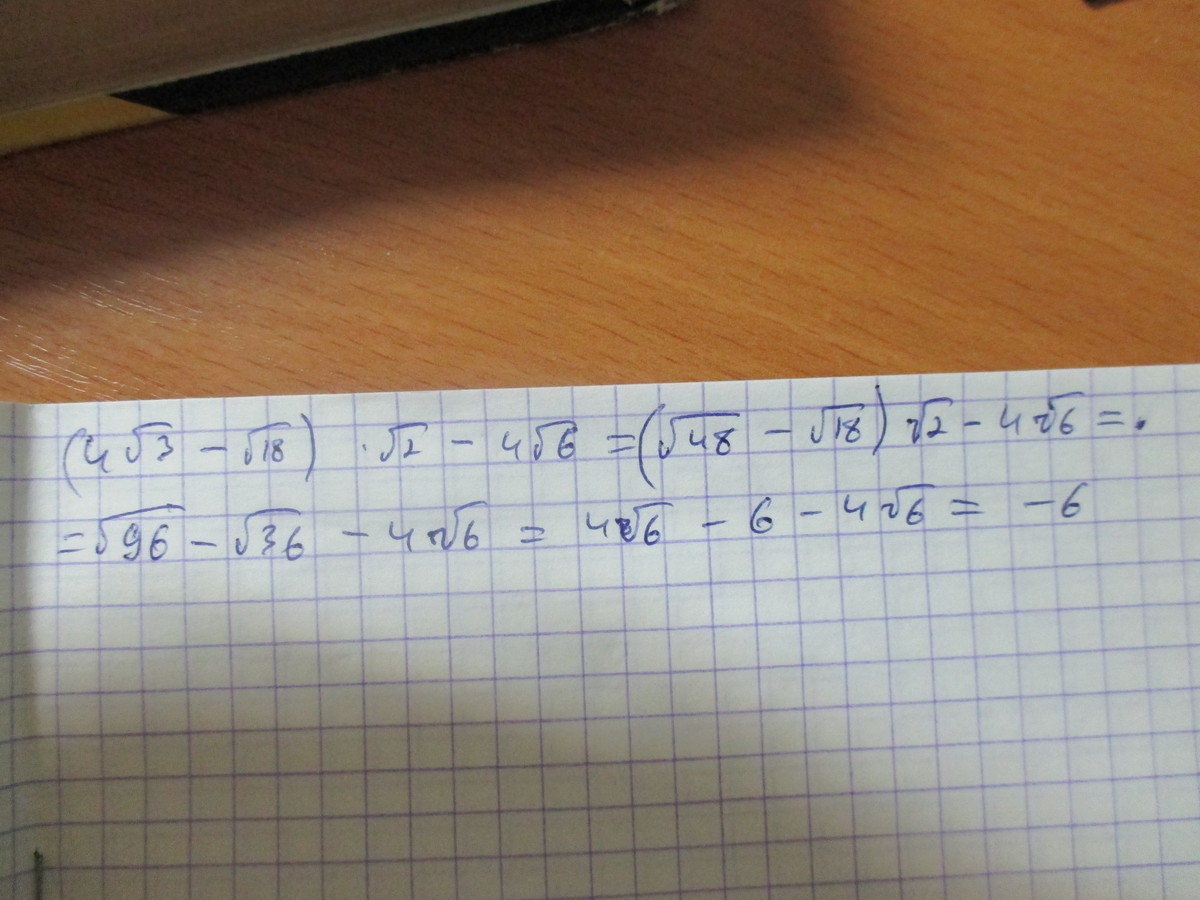 (4√3 − √18) · √2 − 4√6 = (√48 − √18) √2 − 4√6 = .
= √96 − √36 − 4√6 = 4√6 − 6 − 4√6 = −6